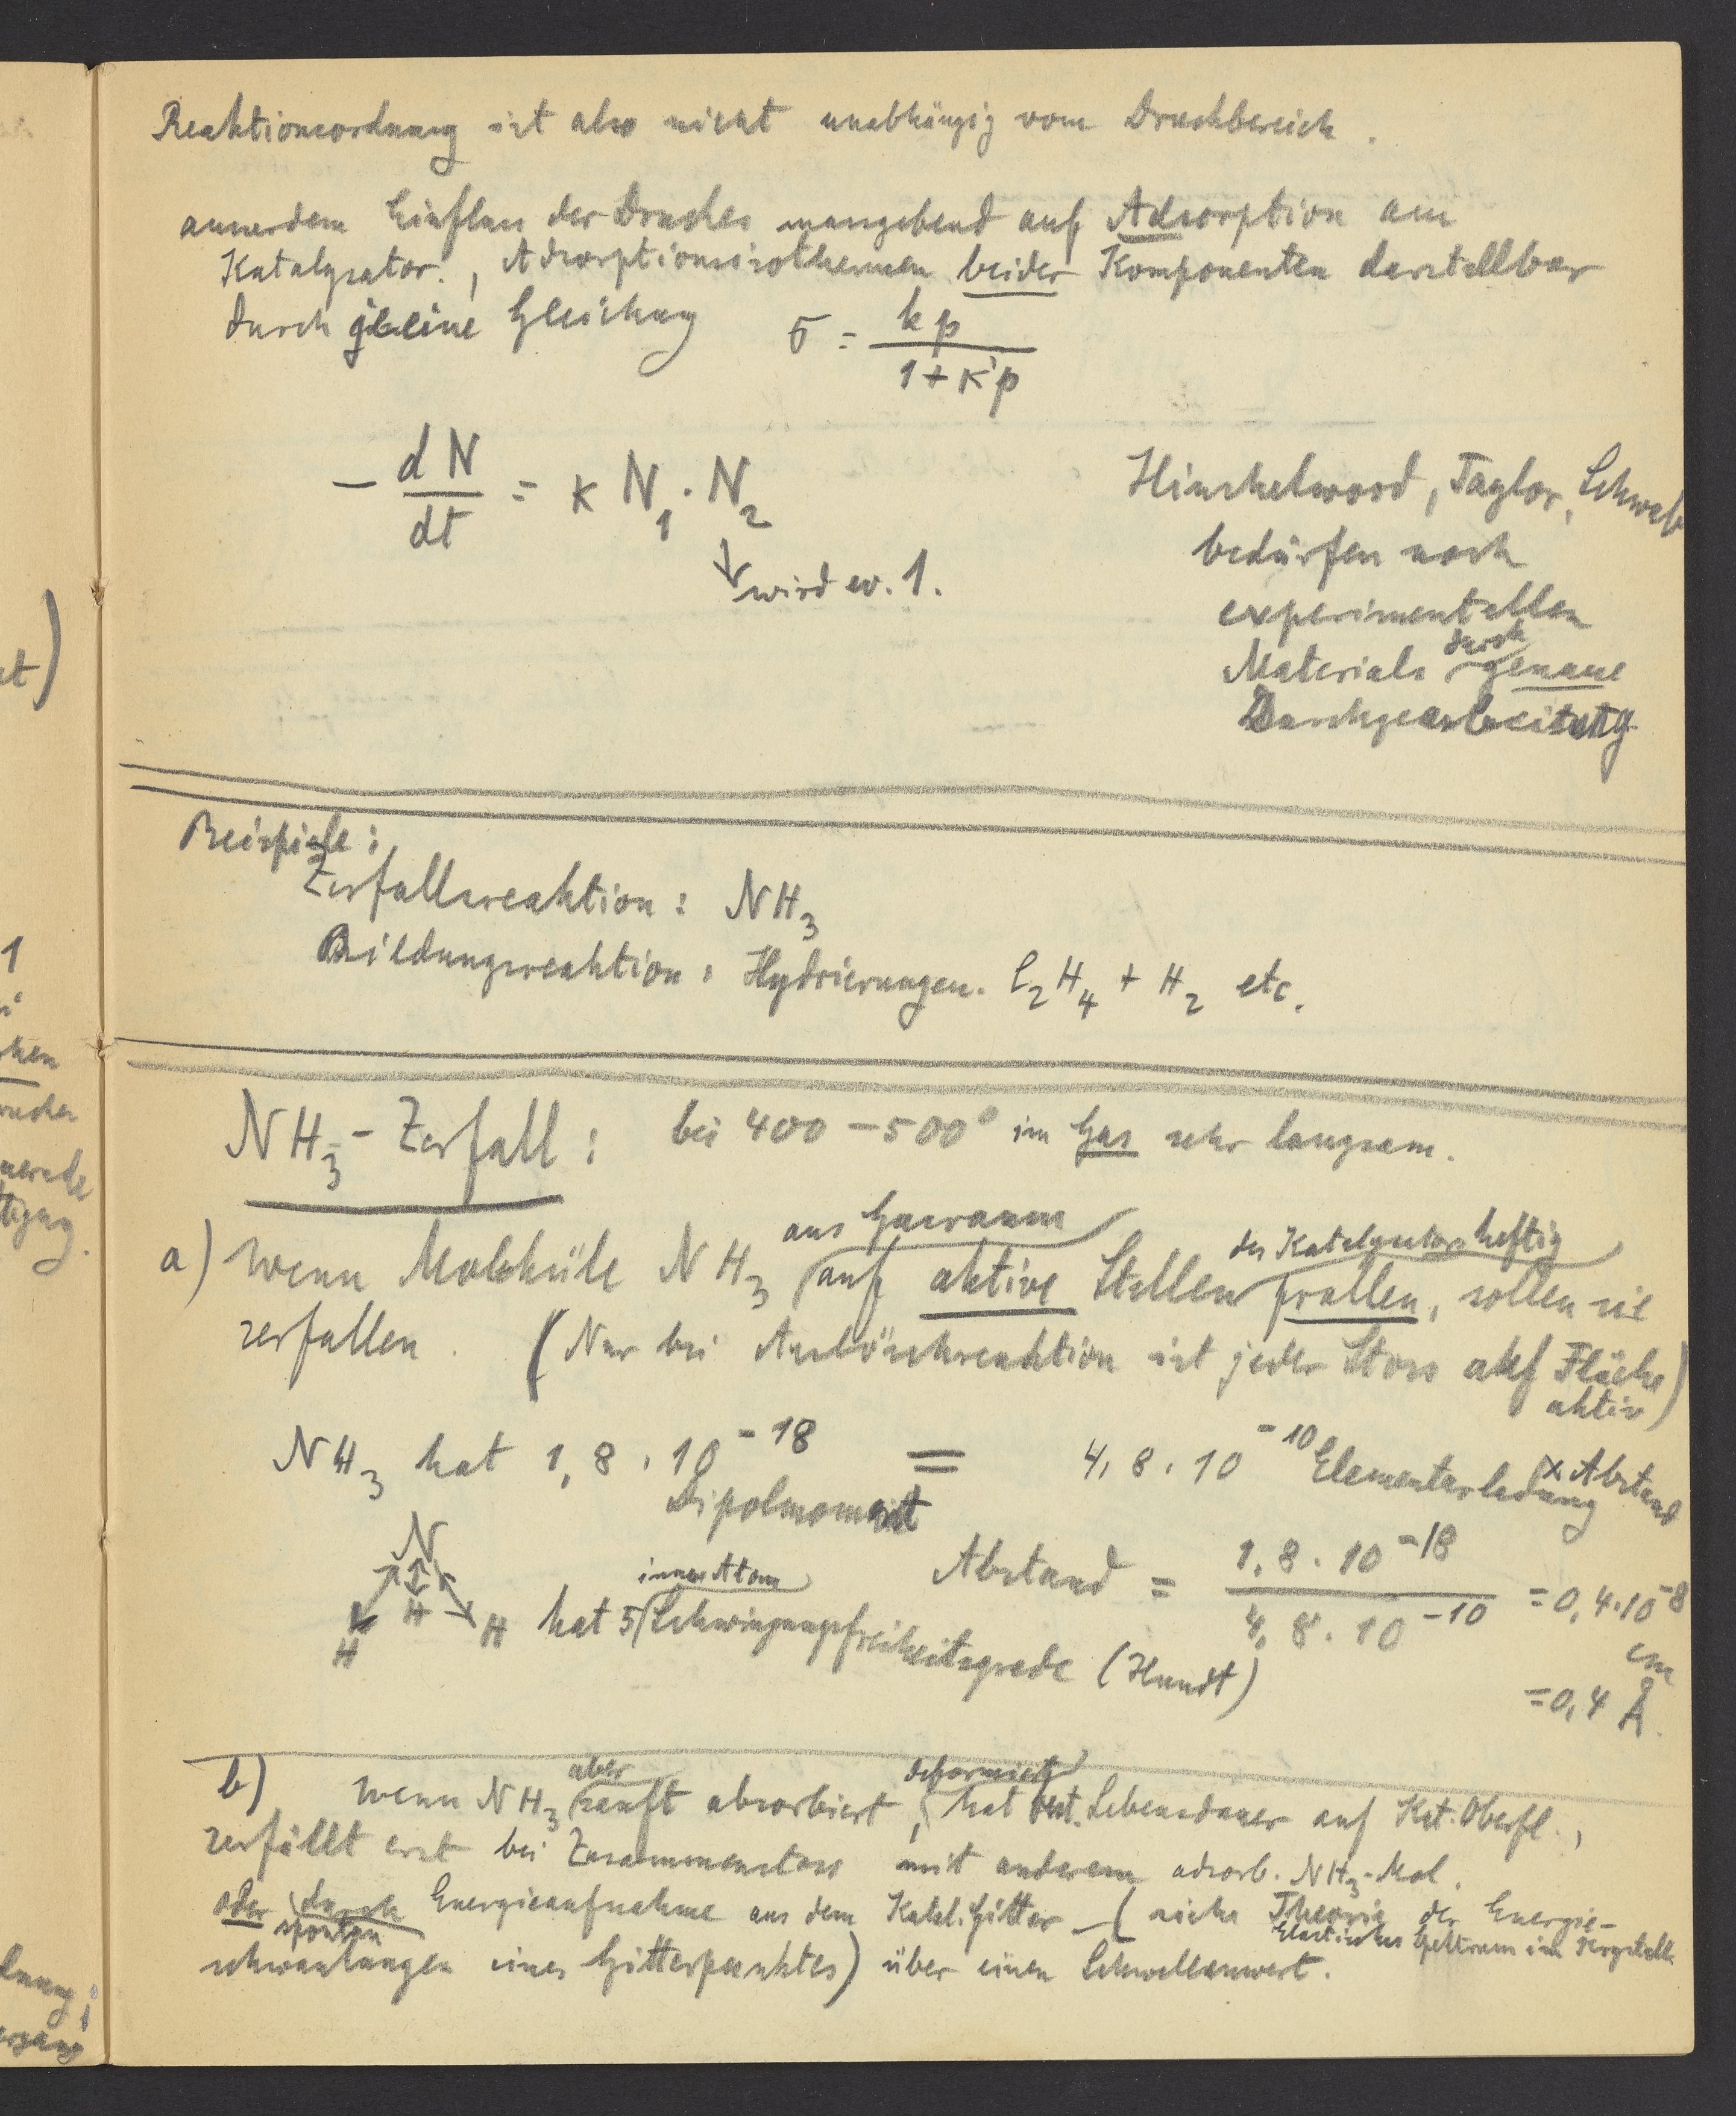 Reaktionsordnung ist also nicht unabhängig vom Druckbereich.
ausserdem Einfluss des Druckes massgebend auf Adsorption am
Katalysator., Adsorptionsisothermen beider Komponenten darstellbar
durch je eine Gleichung σ = kp / 1 + k'p
- dN/dt = K N₁ · N₂
↓ wird ev. 1.
Hinshelwood, Taylor, Schwab
bedürfen noch
experimentellen
Materials durch genaue
Durchgearbeitung
Beispiele:
Zerfallsreaktion: NH₃
Bildungsreaktion: Hydrierungen. C₂H₄ + H₂ etc.
NH₃-Zerfall: bei 400-500° im Gas sehr langsam.
aus Gasraum des Katalysators heftig
a) wenn Moleküle NH₃ auf aktive Stellen prallen, sollen sie
zerfallen. (Nur bei Auslöschreaktion ist jeder Stoss auf Fläche
aktiv)
NH₃ hat 1,8 · 10⁻¹⁸ = 4,8 · 10⁻¹⁰ Elementarladung x Abstand
Dipolmoment
N
H H H
inner Atom
hat 5 Schwingungsfreiheitsgrade (Hundt)
Abstand = 1,8 · 10⁻¹⁸ / 4,8 · 10⁻¹⁰ = 0,4 · 10⁻⁸
cm
= 0,4 Å.
aber deformiert
b) wenn NH₃ sanft absorbiert, hat best. Lebensdauer auf Kat. Oberfl.,
zerfällt erst bei Zusammenstoss mit anderem adsorb. NH₃-Mol.
oder durch Energieaufnahme aus dem Katal. Gitter - (siehe Theorie der Energie-
spontan Elastisches Spektrum im Krystalle
schwankungen eines Gitterpunktes) über einen Schwellenwert.